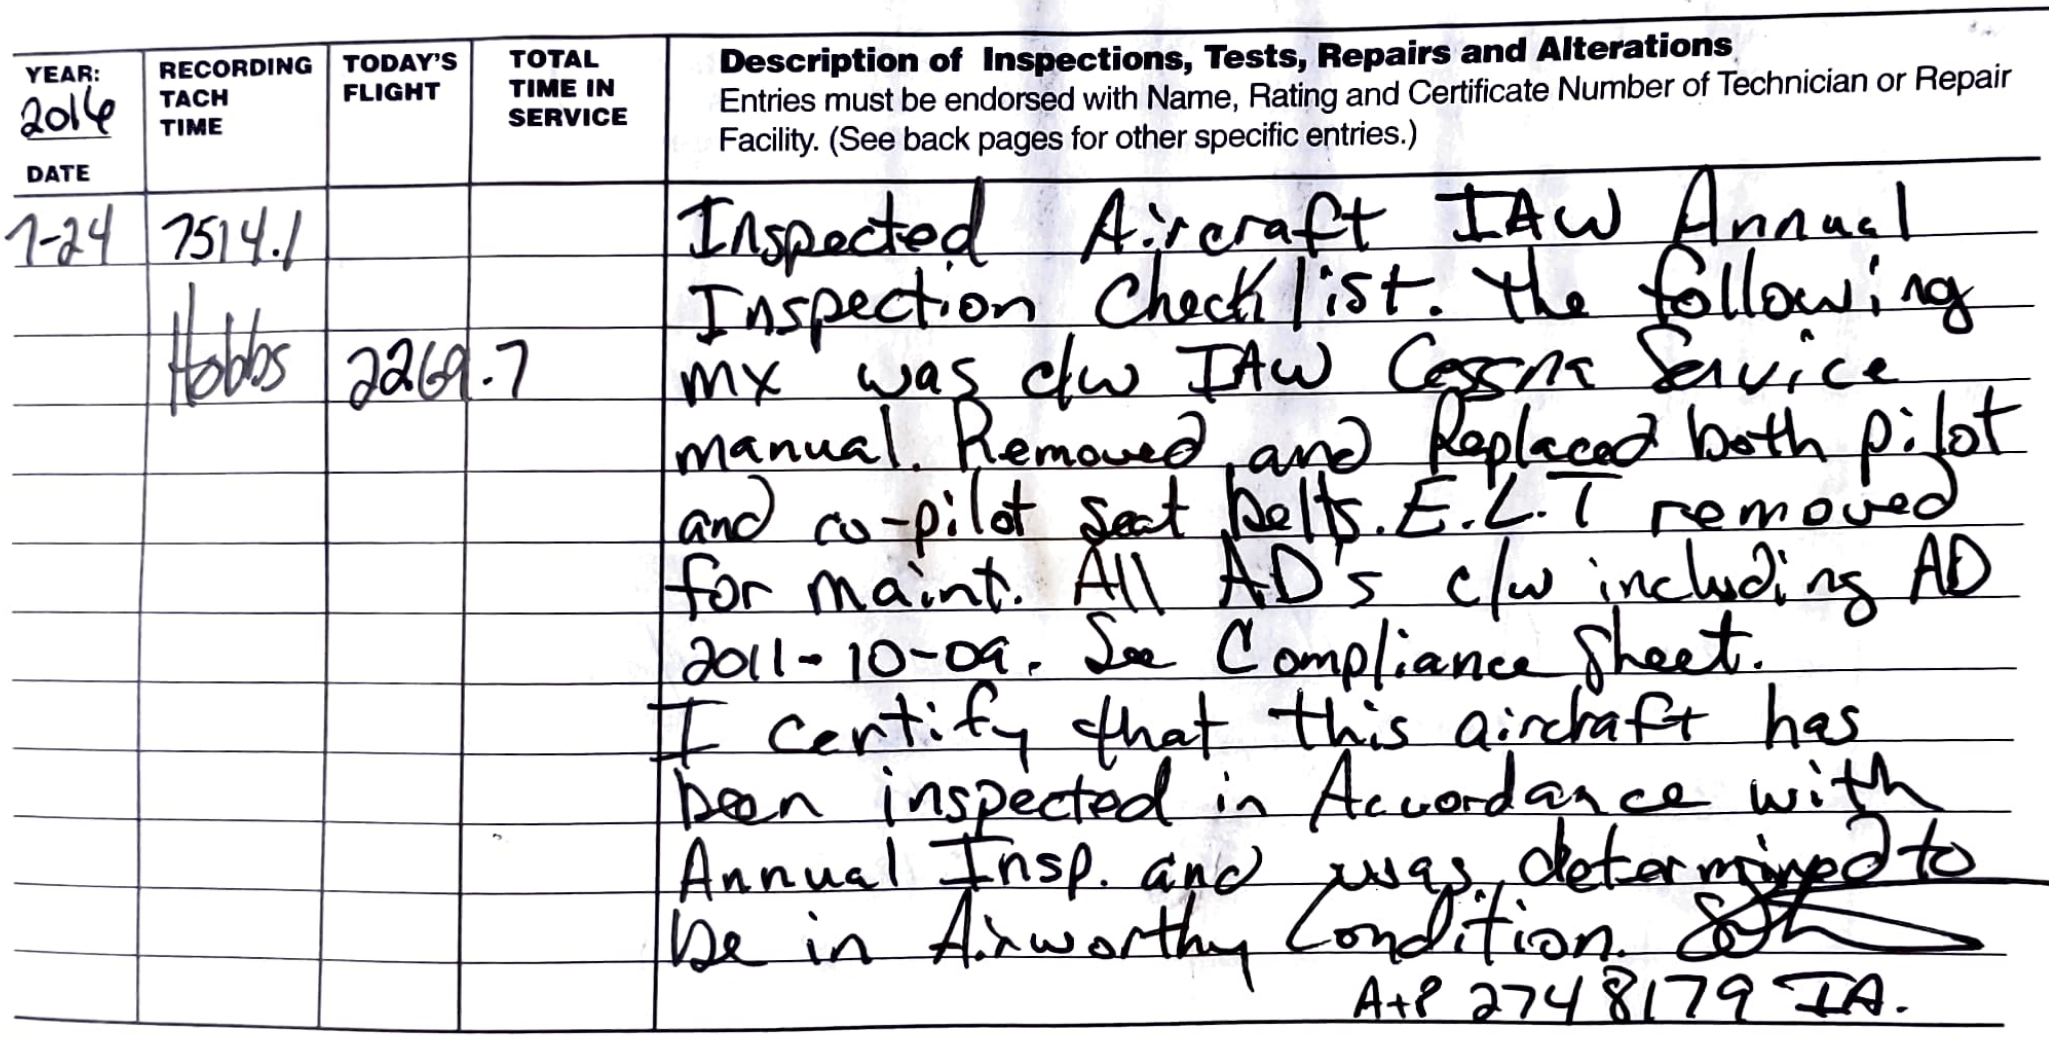 YEAR: 2016
DATE
RECORDING TACH TIME
TODAY'S FLIGHT
TOTAL TIME IN SERVICE
Description of Inspections, Tests, Repairs and Alterations
Entries must be endorsed with Name, Rating and Certificate Number of Technician or Repair
Facility. (See back pages for other specific entries.)
7-24 7514.1 Inspected Aircraft IAW Annual
Inspection Checklist. The following
Hobbs 2269.7 mx was c/w IAW Cessna Service
manual. Removed and Replaced both pilot
and co-pilot seat belts. E.L.T removed
for maint. All AD's c/w including AD
2011-10-09. See Compliance Sheet.
I certify that this aircraft has
been inspected in Accordance with
Annual Insp. and was determined to
be in Airworthy Condition.
A+P 2748179 IA.